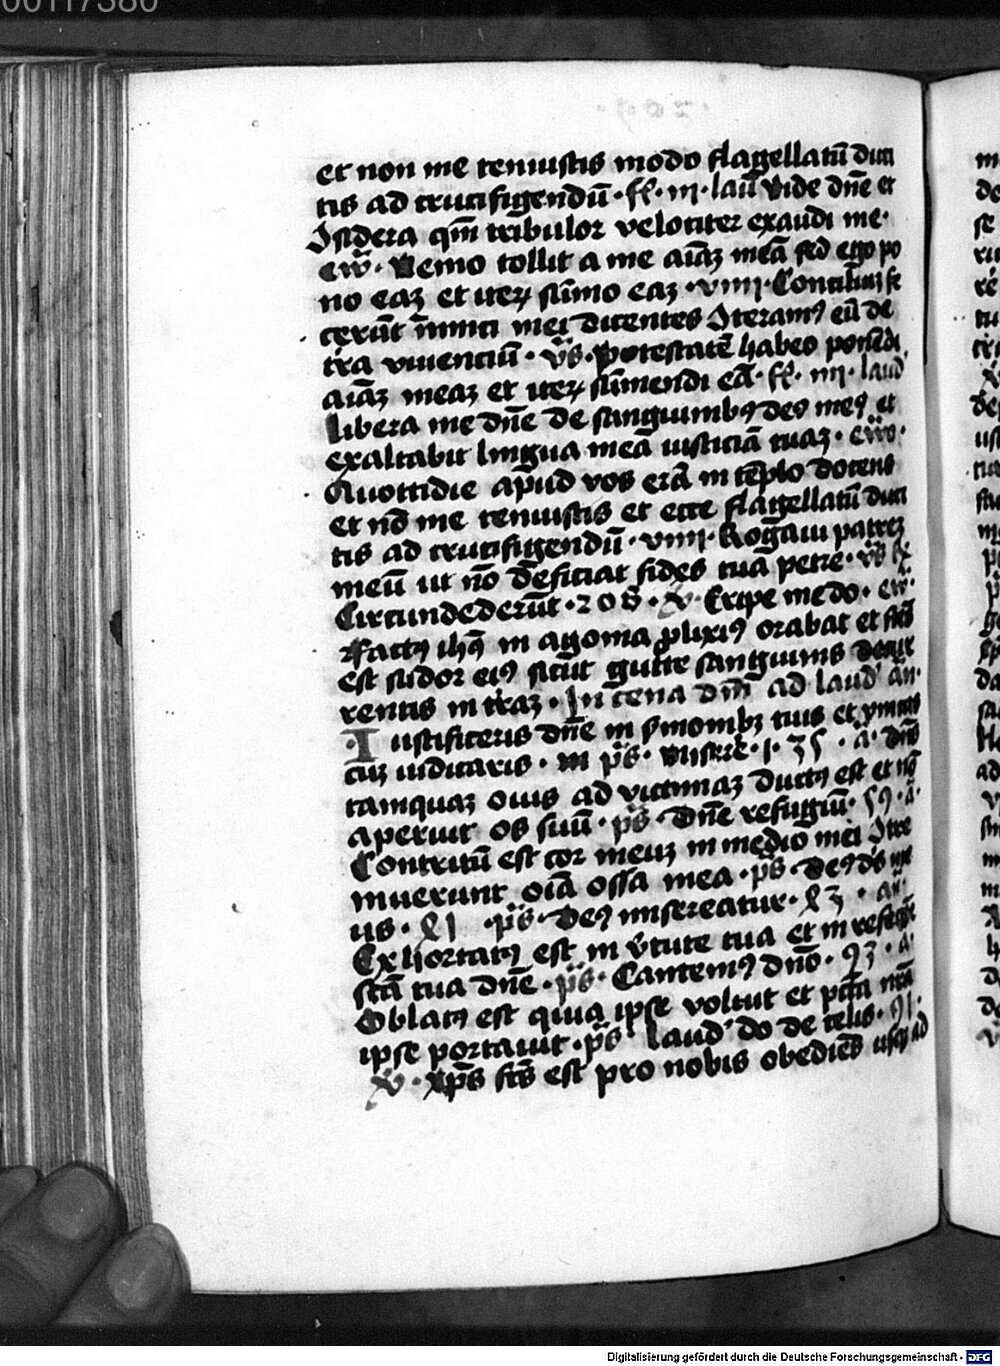 00117380
et non me tenuistis modo flagellatū duci
tis ad crucifigendū · ff · iii · laū Vide dn̄e et
Isidera qm̄ tribulor velociter exaudi me ·
ew̄ · Nemo tollit a me aīaꝫ meā sed ego po
no eaꝫ et iteꝝ sūmo eaꝫ · viiii · Conciliuꝫ fe
cerūt īimici mei dicentes Iteramꝰ eū de
t̄ra viventiū · v̄s · Potestatē habeo ponēdi
aīaꝫ meaꝫ et iteꝝ sūmendi eā · ff · iiii · laud
libera me dn̄e de sanguinibꝰ deꝰ meꝰ et
exaltabit lingua meā iusticiā tuaꝫ · ew̄o ·
Quottidie apud vos erā in tēplo docens
et nō me tenuistis et ecce flagellatū duci
tis ad crucifigendū · viiii · Rogavi patreꝫ
meū ut nō deficiat fides tuā petre · v̄s
Circumdederūt · 208 · v̄ · Eripe me do · ew̄ ·
Factꝰ ih̄s in agonia ꝓlixiꝰ orabat et fctūs
est sudor eiꝰ sicut gutte sanguinis decur
rentis in t̄raꝫ · In cena dn̄i ad laud' an̄ ·
Iustificeris dn̄e in ẜmonibꝫ tuis et
cuꝫ iudicaris · in p̄s · Miserē · 1 · 35 · ā · dn̄s
tamquaꝫ ovis ad victimaꝫ ductꝰ est et nō
aperuit os suū · p̄s · Dn̄e refugiū · 59 · ā ·
Contritū est cor meuꝫ in medio mei Ztre
muerunt oīa ossa mea · p̄s · deꝰ ds me
us · 81 · p̄s · Deꝰ misereatur · 83 · an̄ ·
Exhortatꝰ es in v̄tute tua et in refectōe
sc̄ā tua dn̄e · p̄s · Cantemꝰ dn̄o · 93 · ā ·
Oblatꝰ est quia ipse voluit et pctā nr̄ā
ipse portavit · p̄s laud' do de celis · 91 ·
v̄ · xp̄s fc̄s est pro nobis obediēs usqꝫ ad
Digitalisierung gefördert durch die Deutsche Forschungsgemeinschaft - DFG